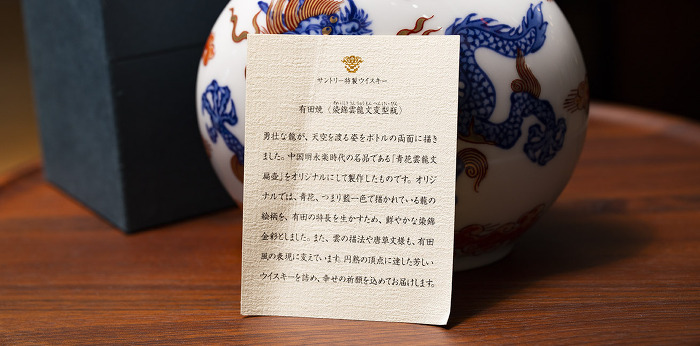 サントリー特製ウイスキー
有田焼〈染錦雲龍文変型瓶〉
勇壮な龍が、天空を渡る姿をボトルの両面に描き
ました。中国明永楽時代の名品である「青花雲龍文
扁壺」をオリジナルにして製作したものです。オリジ
ナルでは、青花、つまり藍一色で描かれている龍の
絵柄を、有田の特長を生かすため、鮮やかな染錦
金彩としました。また、雲の描法や唐草文様も、有田
風の表現に変えています。円熟の頂点に達した芳しい
ウイスキーを詰め、幸せの祈願を込めてお届けします。